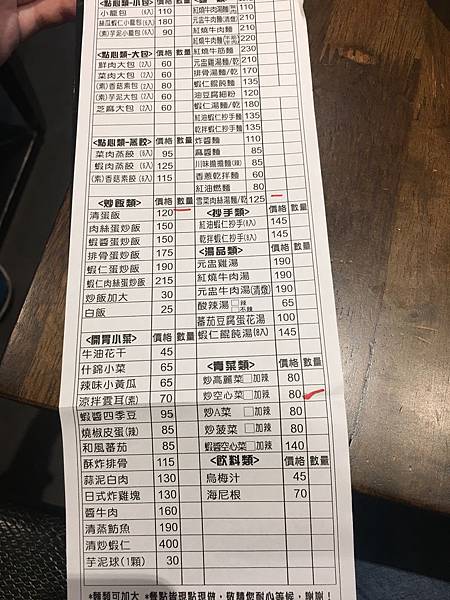 <點心類-小包> 價格 數量
小籠包 (6入) 110
絲瓜蝦仁小籠包 (6入) 180
(素)芋泥小籠包 (6入) 90
<點心類-大包> 價格 數量
鮮肉大包 (2入) 60
菜肉大包 (2入) 60
(素)香菇素包 (2入) 60
(素)芋泥大包 (2入) 60
芝麻大包 (2入) 60
<點心類-蒸餃> 價格 數量
菜肉蒸餃 (6入) 95
蝦肉蒸餃 (6入) 125
(素)香菇素餃 (6入) 115
<炒飯類> 價格 數量
清蛋飯 120
肉絲蛋炒飯 150
蝦醬蛋炒飯 150
排骨蛋炒飯 175
蝦仁蛋炒飯 190
蝦仁肉絲蛋炒飯 215
炒飯加大 30
白飯 25
<開胃小菜> 價格 數量
牛油花干 45
什錦小菜 65
辣味小黃瓜 65
涼拌雲耳(素) 70
蝦醬四季豆 95
燒椒皮蛋(辣) 85
和風蕃茄 85
酥炸排骨 115
蒜泥白肉 130
日式炸雞塊 130
醬牛肉 160
清蒸魴魚 190
清炒蝦仁 400
芋泥球(1顆) 30
紅燒牛肉湯麵 110
元盅牛肉麵(清燉) 210
紅燒牛肉麵 210
紅燒牛肉麵 220
紅燒牛筋麵 230
元盅雞湯麵/乾 210
排骨湯麵/乾 170
蝦仁餛飩麵 135
油豆腐細粉 120
蝦仁湯麵/乾 180
紅油蝦仁抄手麵 135
乾拌蝦仁抄手麵 135
炸醬麵 110
麻醬麵 85
川味擔擔麵(辣) 85
香蔥乾拌麵 60
紅油燃麵 80
雪菜肉絲湯麵/乾 125
<抄手類> 價格 數量
紅油蝦仁抄手(8入) 145
乾拌蝦仁抄手(8入) 145
<湯品類> 價格 數量
元盅雞湯 190
紅燒牛肉湯 190
元盅牛肉湯(清燉) 190
酸辣湯 □辣 □不辣 65
蕃茄豆腐蛋花湯 100
蝦仁餛飩湯(8入) 145
<青菜類> 價格 數量
炒高麗菜□加辣 80
炒空心菜□加辣 80
炒A菜 □加辣 80
炒菠菜 □加辣 80
蝦醬空心菜□加辣 140
<飲料類> 價格 數量
烏梅汁 45
海尼根 70
*麵類可加大 *餐點皆現點現做，敬請您耐心等候，謝謝！